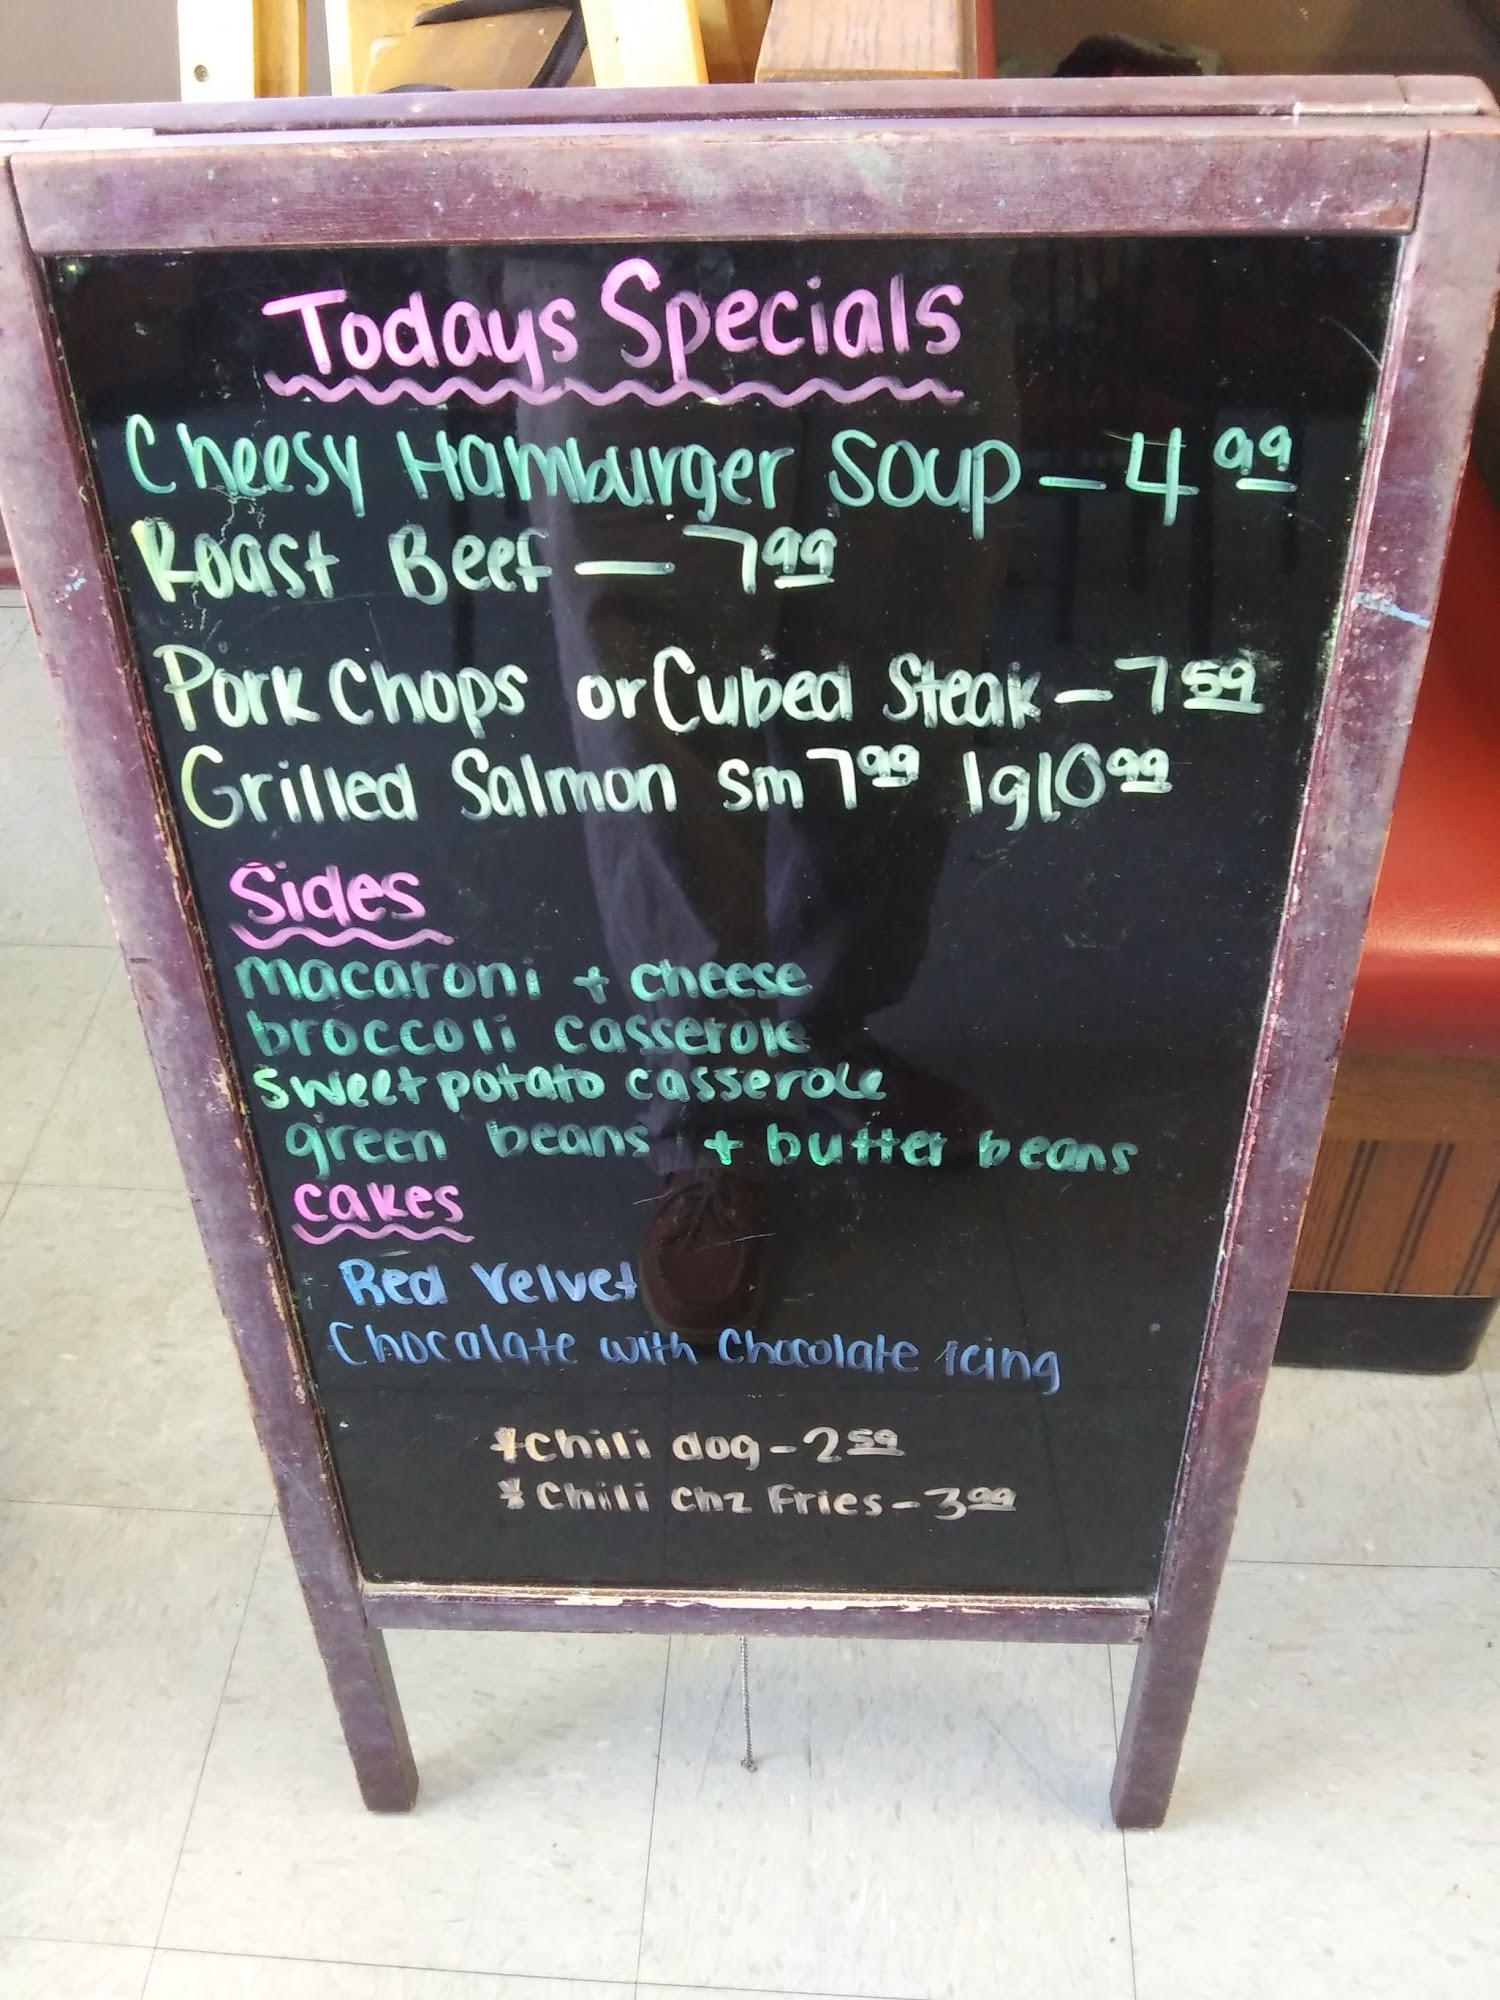 Todays Specials
Cheesy Hamburger Soup - 4 99
Roast Beef - 7 99
Pork Chops or Cubed Steak - 7 59
Grilled Salmon sm 7 99 lg 10 99
Sides
macaroni + cheese
broccoli casserole
sweet potato casserole
green beans + butter beans
cakes
Red Velvet
Chocalate with Chocolate Icing
*Chili dog - 2 59
*Chili Chz Fries - 3 99